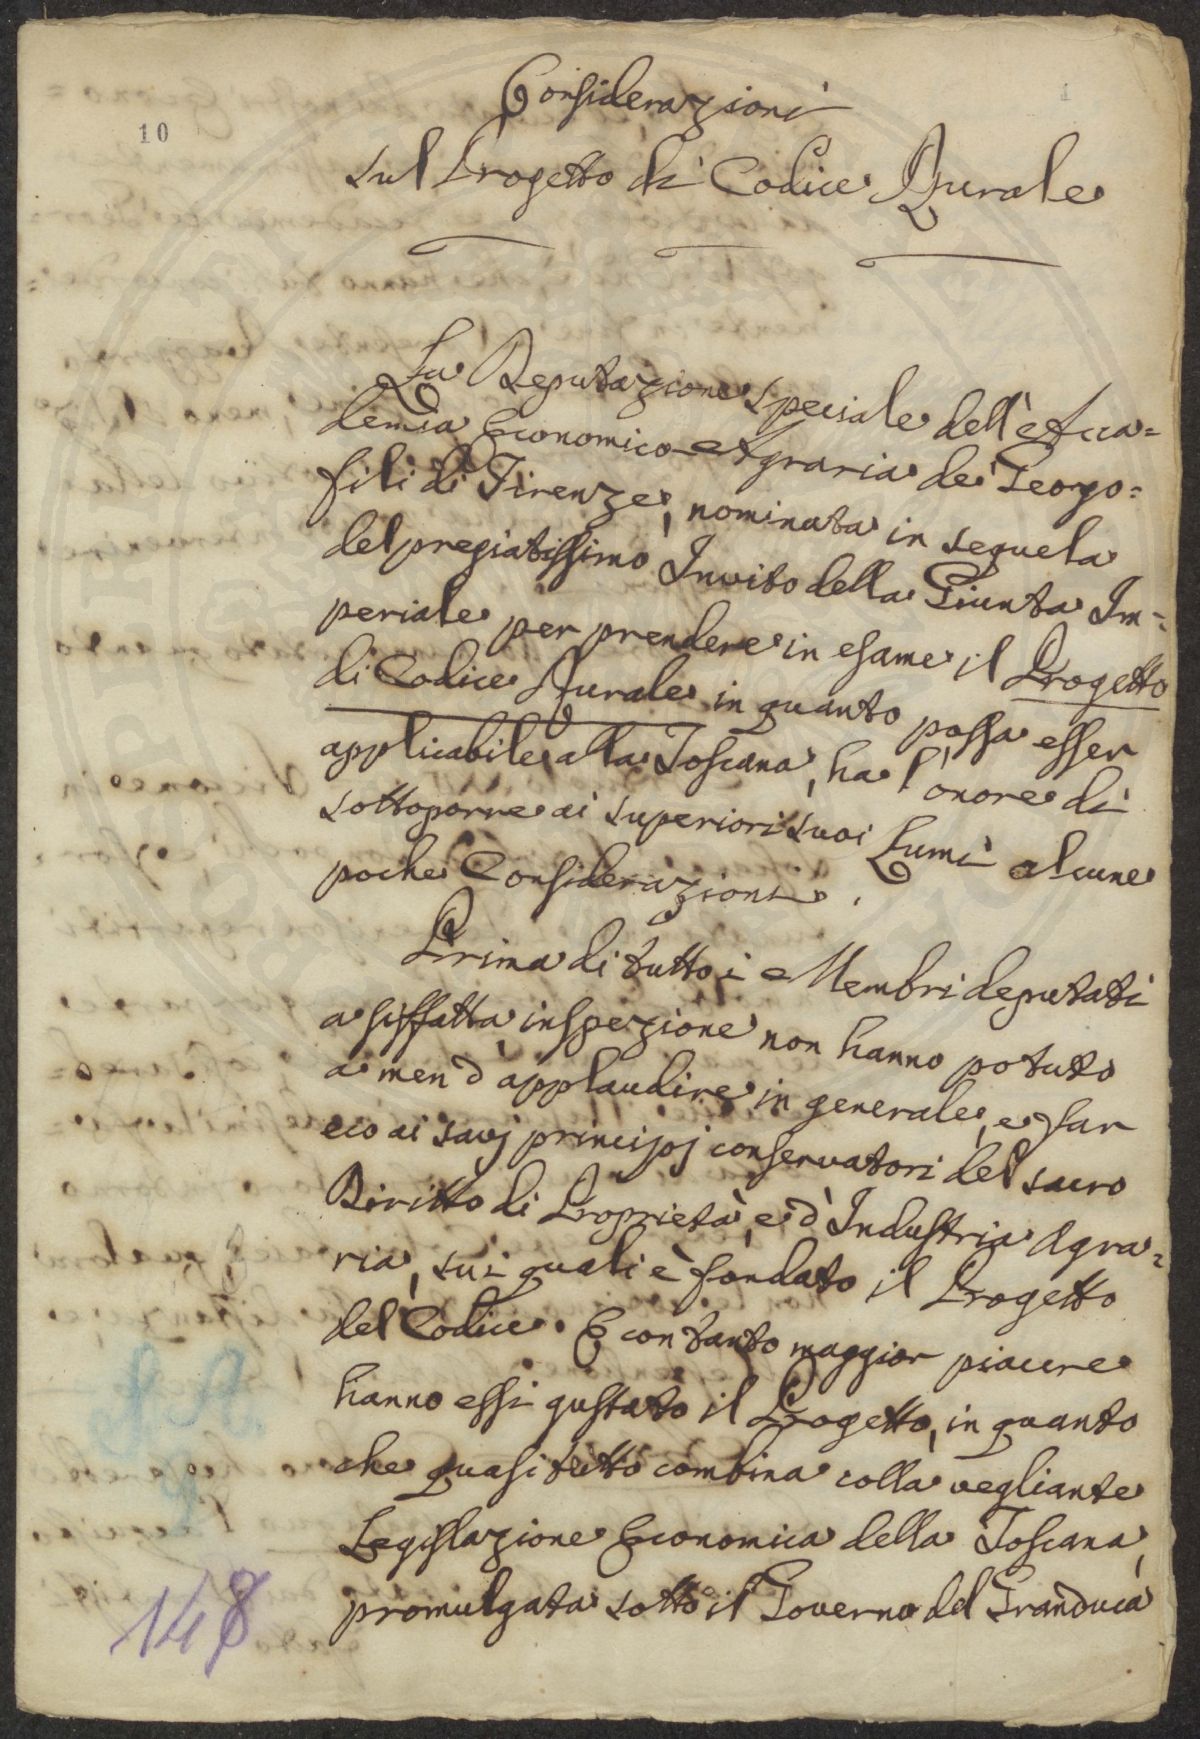 10
1
Considerazioni
sul Progetto di Codice Rurale
La Deputazione speciale dell'Acca=
demia Economico-Agraria dei Georgo=
fili di Firenze, nominata in sequela
del pregiatissimo Invito della Giunta Im=
periale per prendere in esame il Progetto
di Codice Rurale in quanto possa esser
applicabile alla Toscana, ha l'onore di
sottoporre ai superiori suoi Lumi alcune
poche Considerazioni.
Prima di tutto i Membri deputati
a siffatta inspezione non hanno potuto
a men d'applaudire in generale, e far
eco ai savj principj conservatori del sacro
Diritto di Proprietà, e d'Industria Agra=
ria, sui quali è fondato il Progetto
del Codice. E con tanto maggior piacere
hanno essi gustato il Progetto, in quanto
che quasi tutto combina colla vegliante
Legislazione Economica della Toscana,
promulgata sotto il Governo del Granduca
148